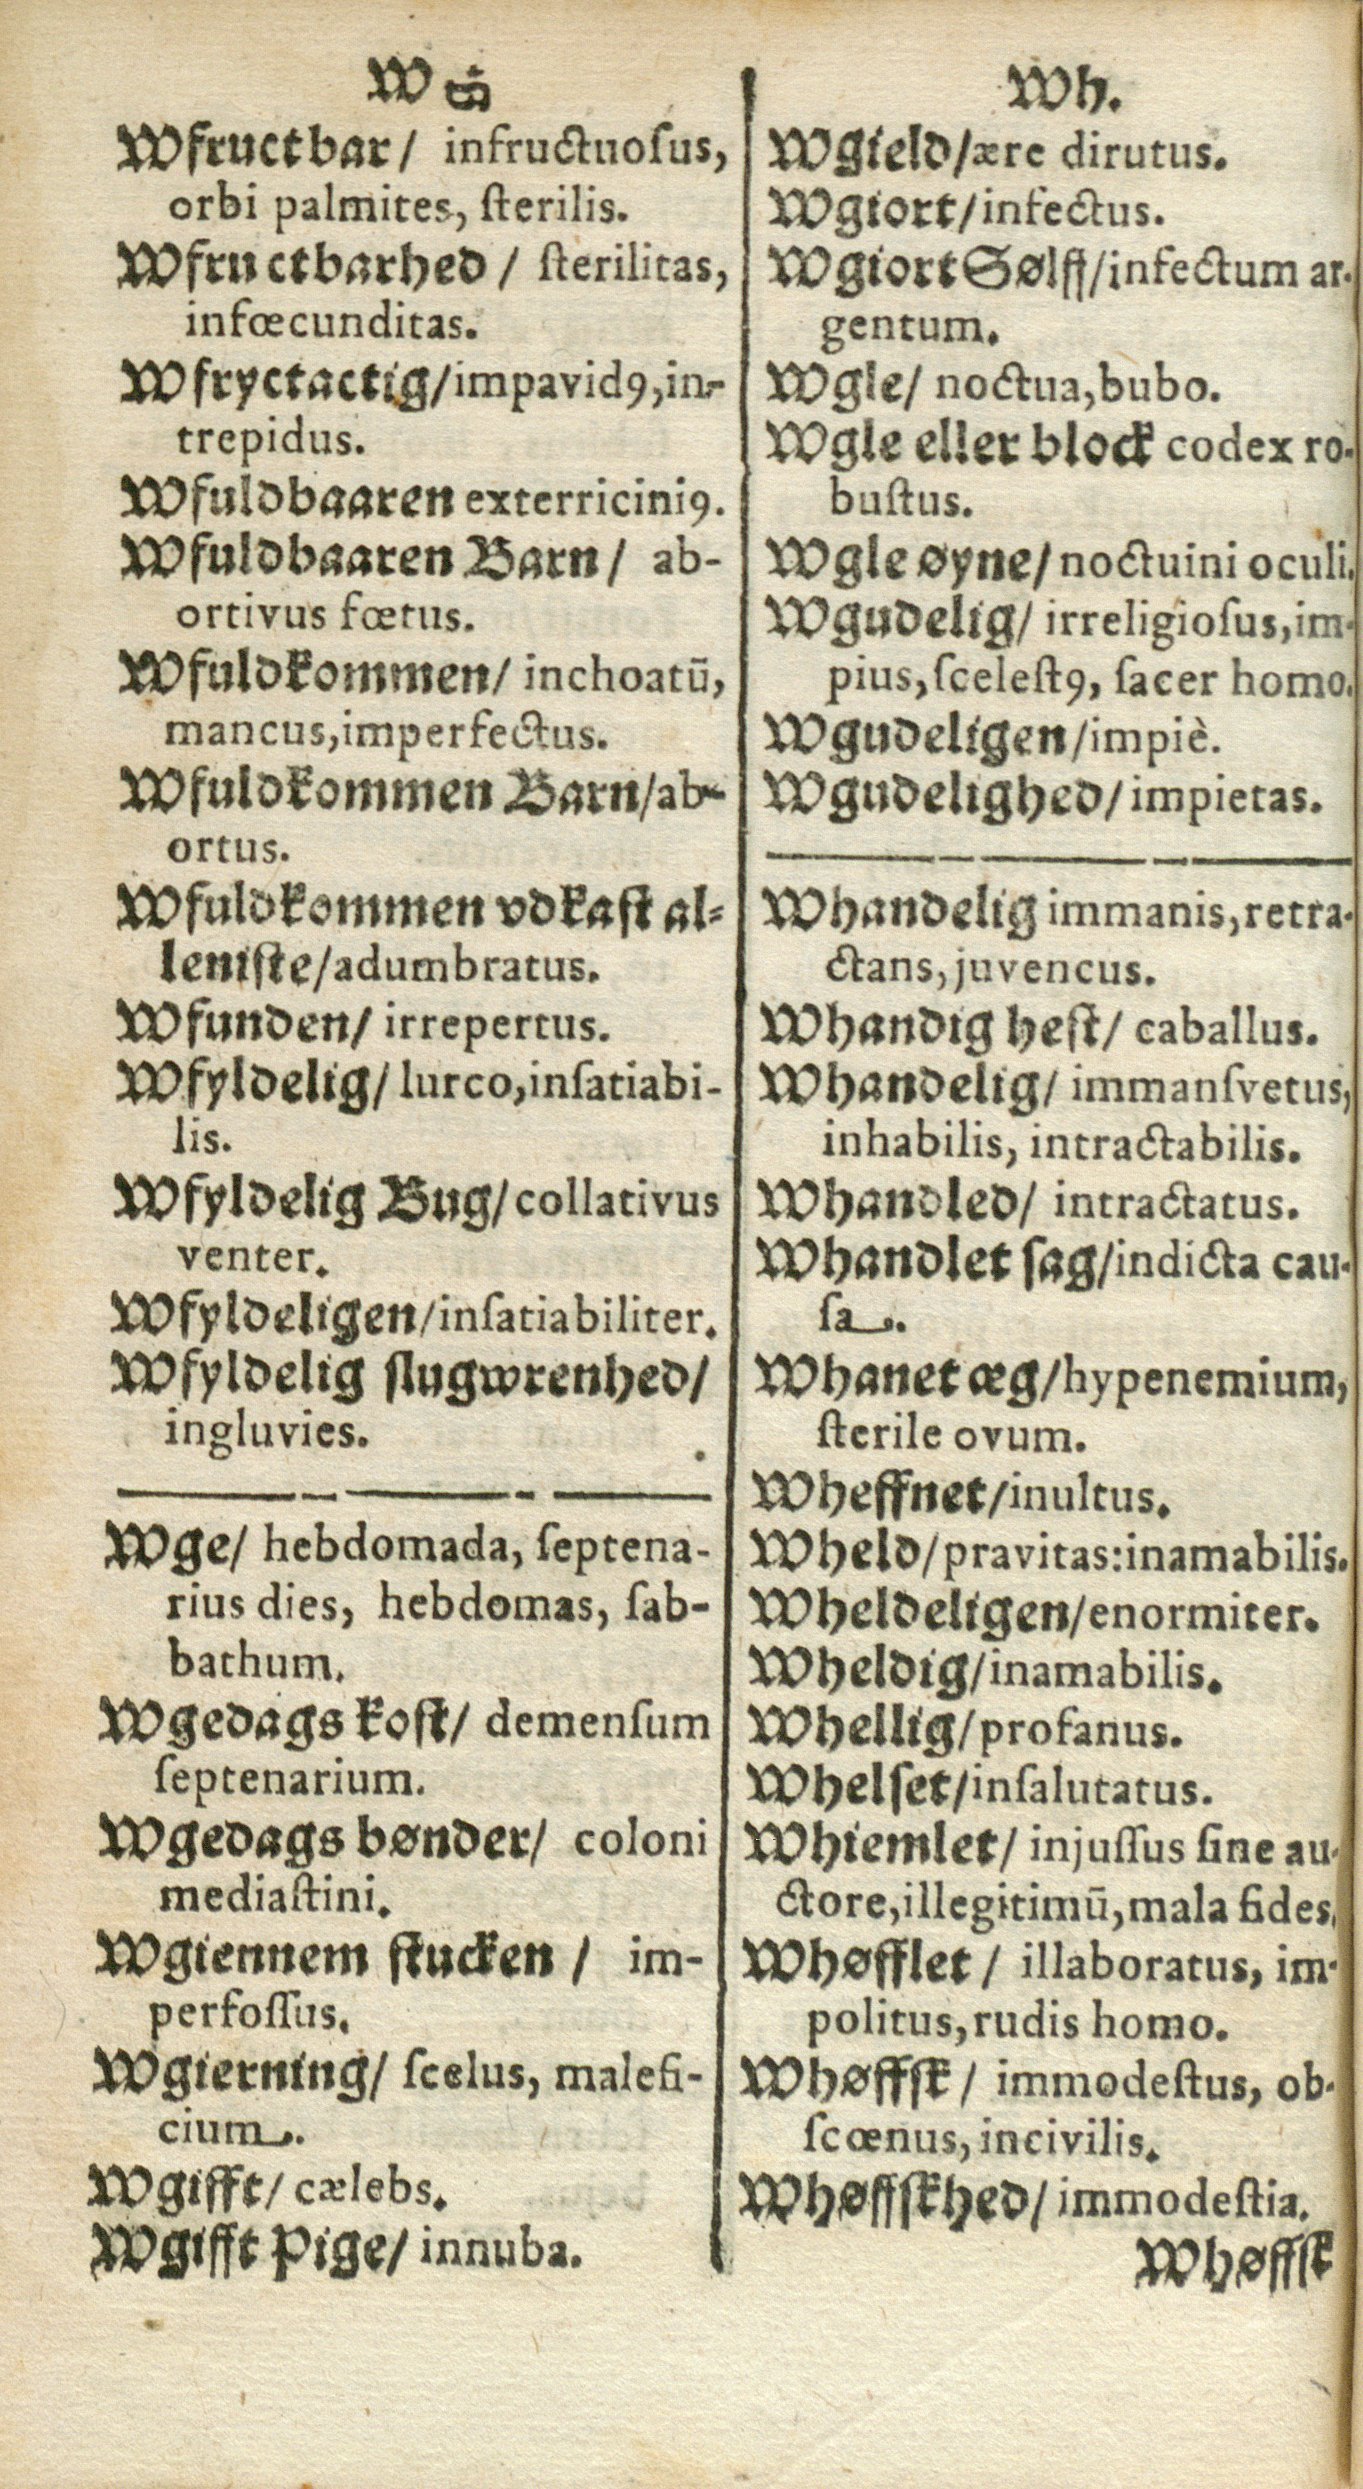 W g
Wfructbar/ infructuoſus,
orbi palmites, ſterilis.
Wfructbarhed / ſterilitas,
infœcunditas.
Wfryctactig/impavidꝰ,in-
trepidus.
Wfuldbaaren exterriciniꝰ.
Wfuldbaaren Barn/ ab-
ortivus fœtus.
Wfuldkommen/ inchoatū,
mancus,imperfectus.
Wfuldkommen Barn/ab-
ortus.
Wfuldkommen vdkaſt al-
leniſte/adumbratus.
Wfunden/ irrepertus.
Wfyldelig/ lurco,inſatiabi-
lis.
Wfyldelig Bug/collativus
venter.
Wfyldeligen/inſatiabiliter.
Wfyldelig ſlugwrenhed/
ingluvies.
Wge/ hebdomada, ſeptena-
rius dies, hebdomas, ſab-
bathum.
Wgedags koſt/ demenſum
ſeptenarium.
Wgedags bønder/ coloni
mediaſtini.
Wgiennem ſtucken / im-
perfoſſus.
Wgierning/ ſcelus, malefi-
cium.
Wgifft/ cælebs.
Wgifft Pige/ innuba.
Wh.
Wgield/ære dirutus.
Wgiort/infectus.
Wgiort Sølff/infectum ar-
gentum.
Wgle/ noctua,bubo.
Wgle eller block codex ro-
buſtus.
Wgle øyne/ noctuini oculi.
Wgudelig/ irreligioſus,im-
pius,ſceleſtꝰ, ſacer homo.
Wgudeligen/impiè.
Wgudelighed/ impietas.
Whandelig immanis,retra-
ctans,juvencus.
Whandig heſt/ caballus.
Whandelig/ immanſvetus,
inhabilis, intractabilis.
Whandled/ intractatus.
Whandlet ſag/indicta cau-
ſa.
Whanet æg/hypenemium,
ſterile ovum.
Wheffnet/inultus.
Wheld/pravitas:inamabilis.
Wheldeligen/enormiter.
Wheldig/inamabilis.
Whellig/profanus.
Whelſet/inſalutatus.
Whiemlet/ injuſſus ſine au-
ctore,illegitimū,mala fides.
Whøfflet / illaboratus, im-
politus,rudis homo.
Whøffſk / immodeſtus, ob-
ſcœnus, incivilis.
Whøffſkhed/ immodeſtia.
Whøffſk